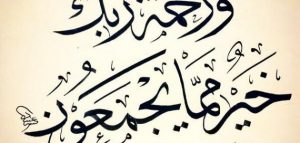 ورحمة ربك
خير مما يجمعون